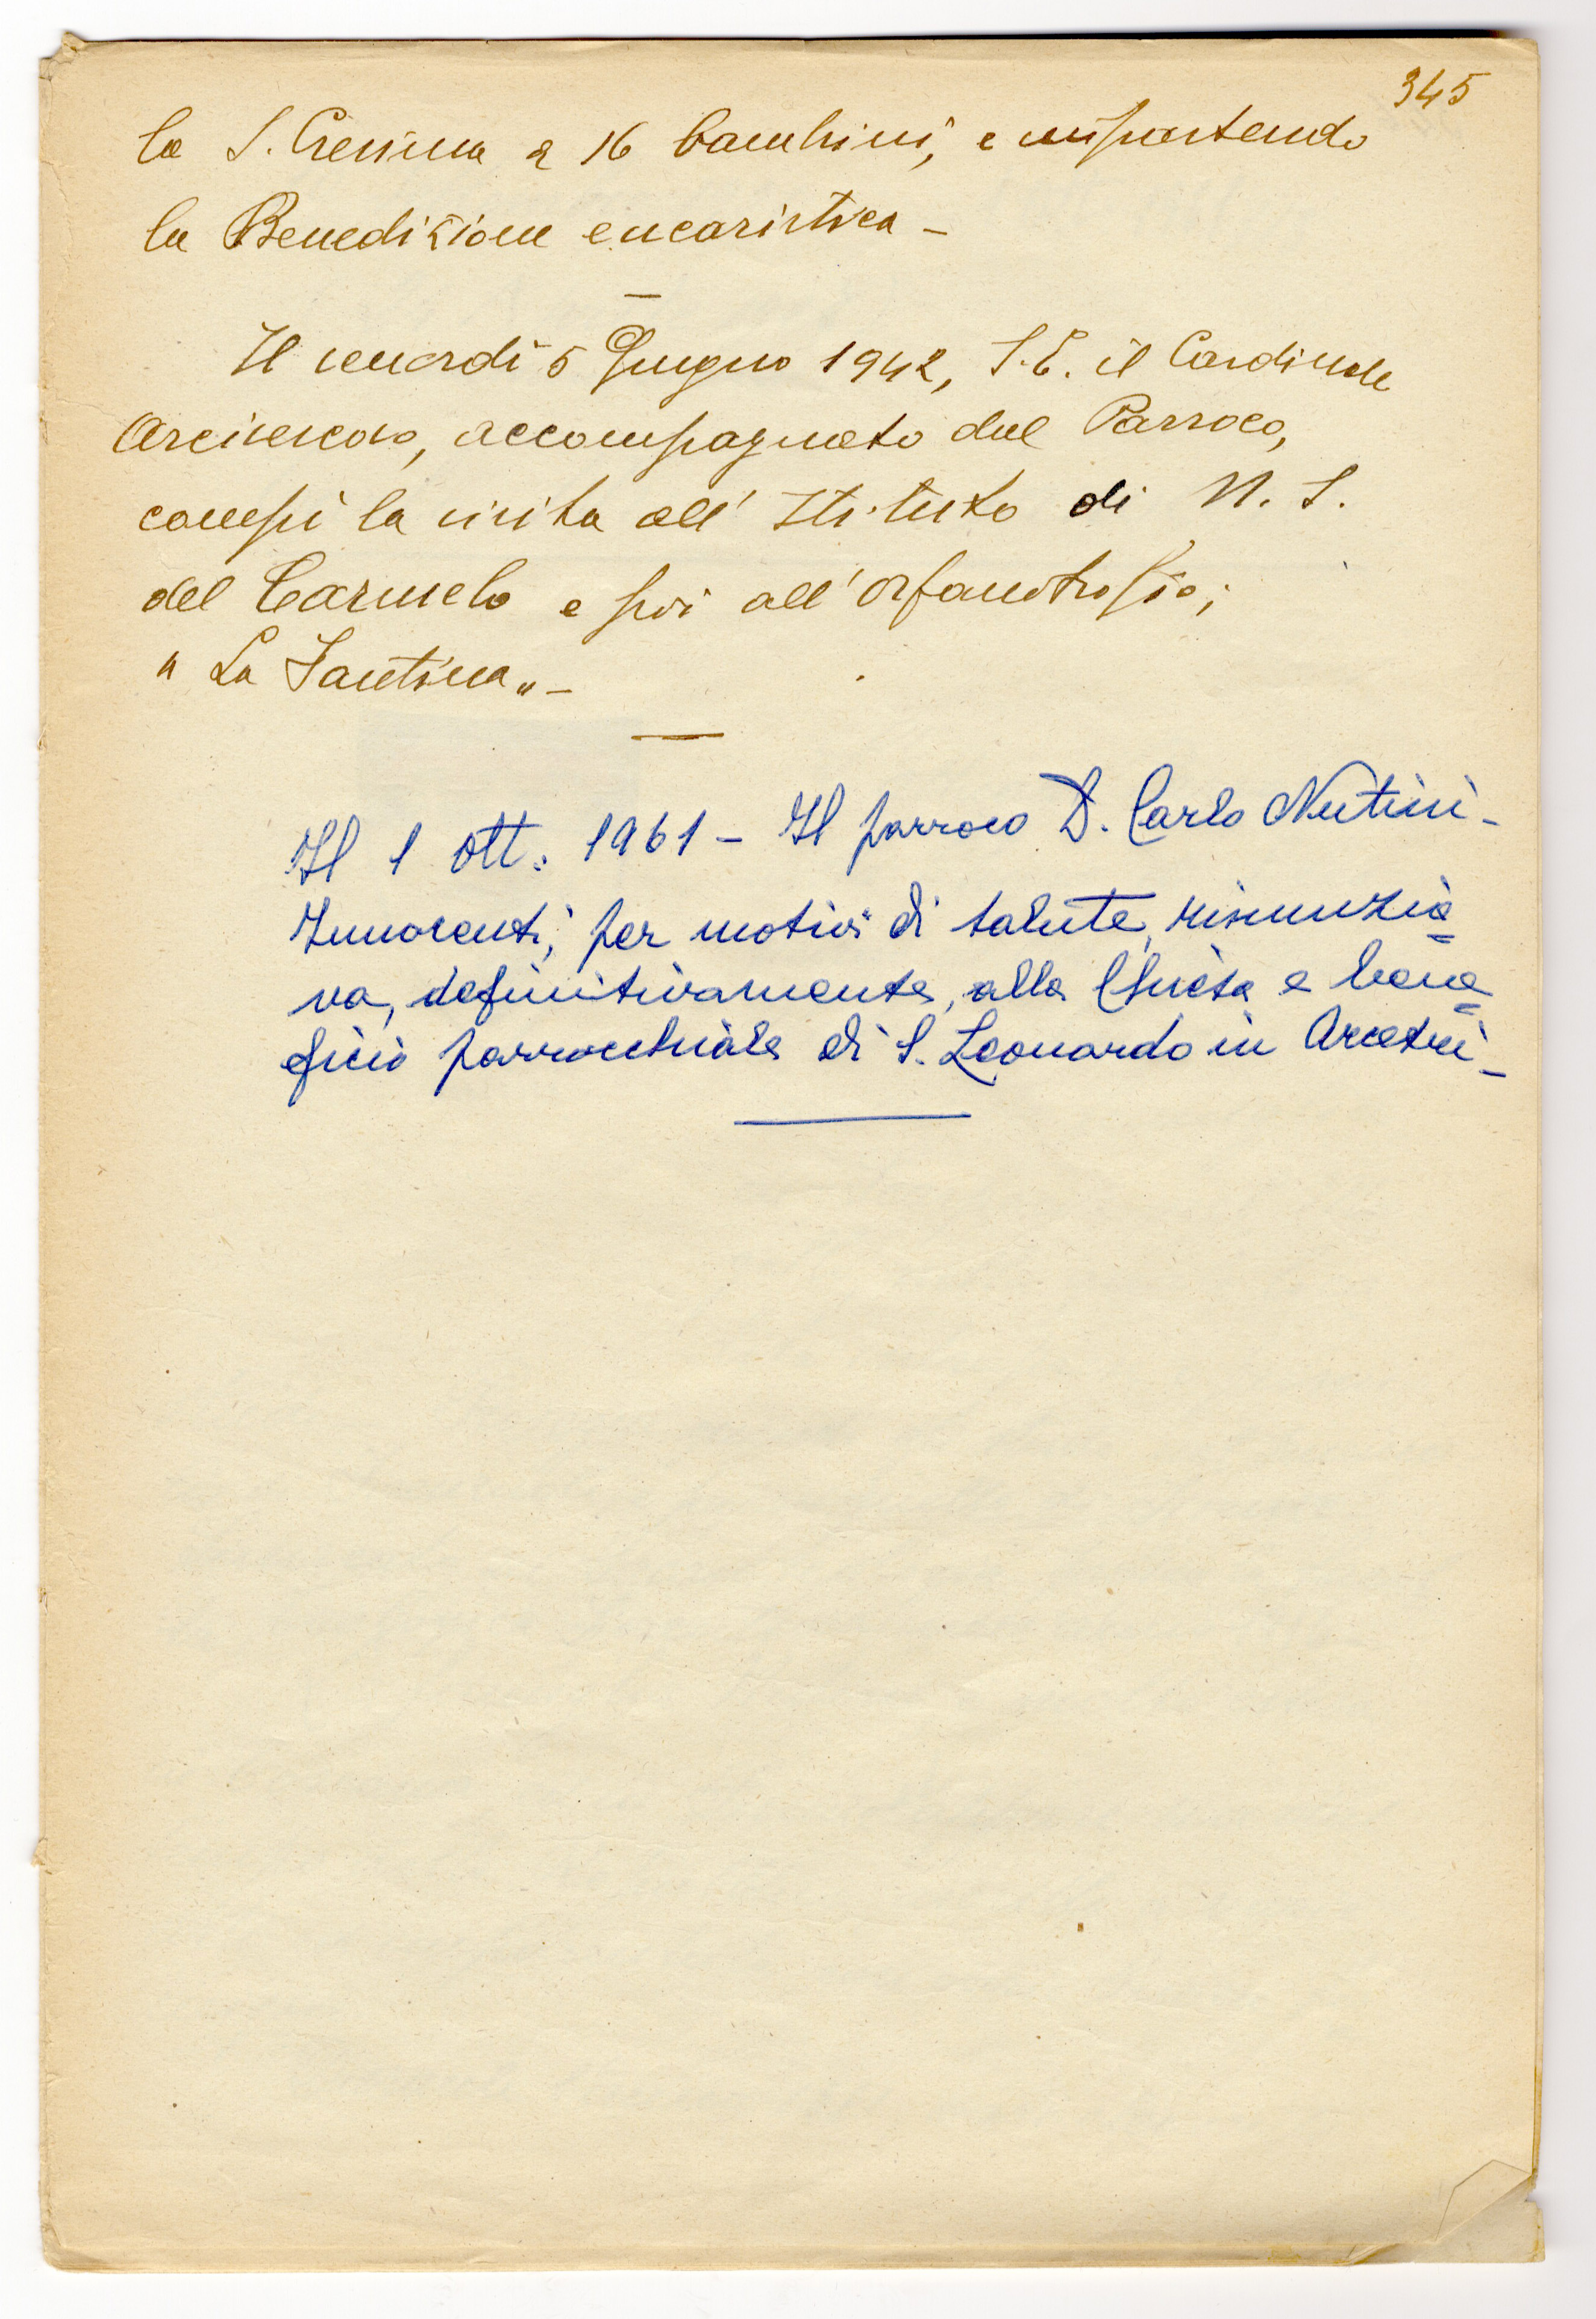 345
la S. Cresima a 16 bambini, e impartendo
la Benedizione eucaristica –
Il venerdì 5 Giugno 1942, S.E. il Cardinale
Arcivescovo, accompagnato dal Parroco,
compì la visita all' Istituto di N. S.
del Carmelo e poi all' Orfanotrofio;
" La Santina„ –
Il 1 Ott: 1961 – Il parroco D. Carlo Nutini –
Innocenti, per motivi di salute, rinunzia=
va, definitivamente, alla Chiesa e bene=
ficio parrocchiale di S. Leonardo in Arcetri –